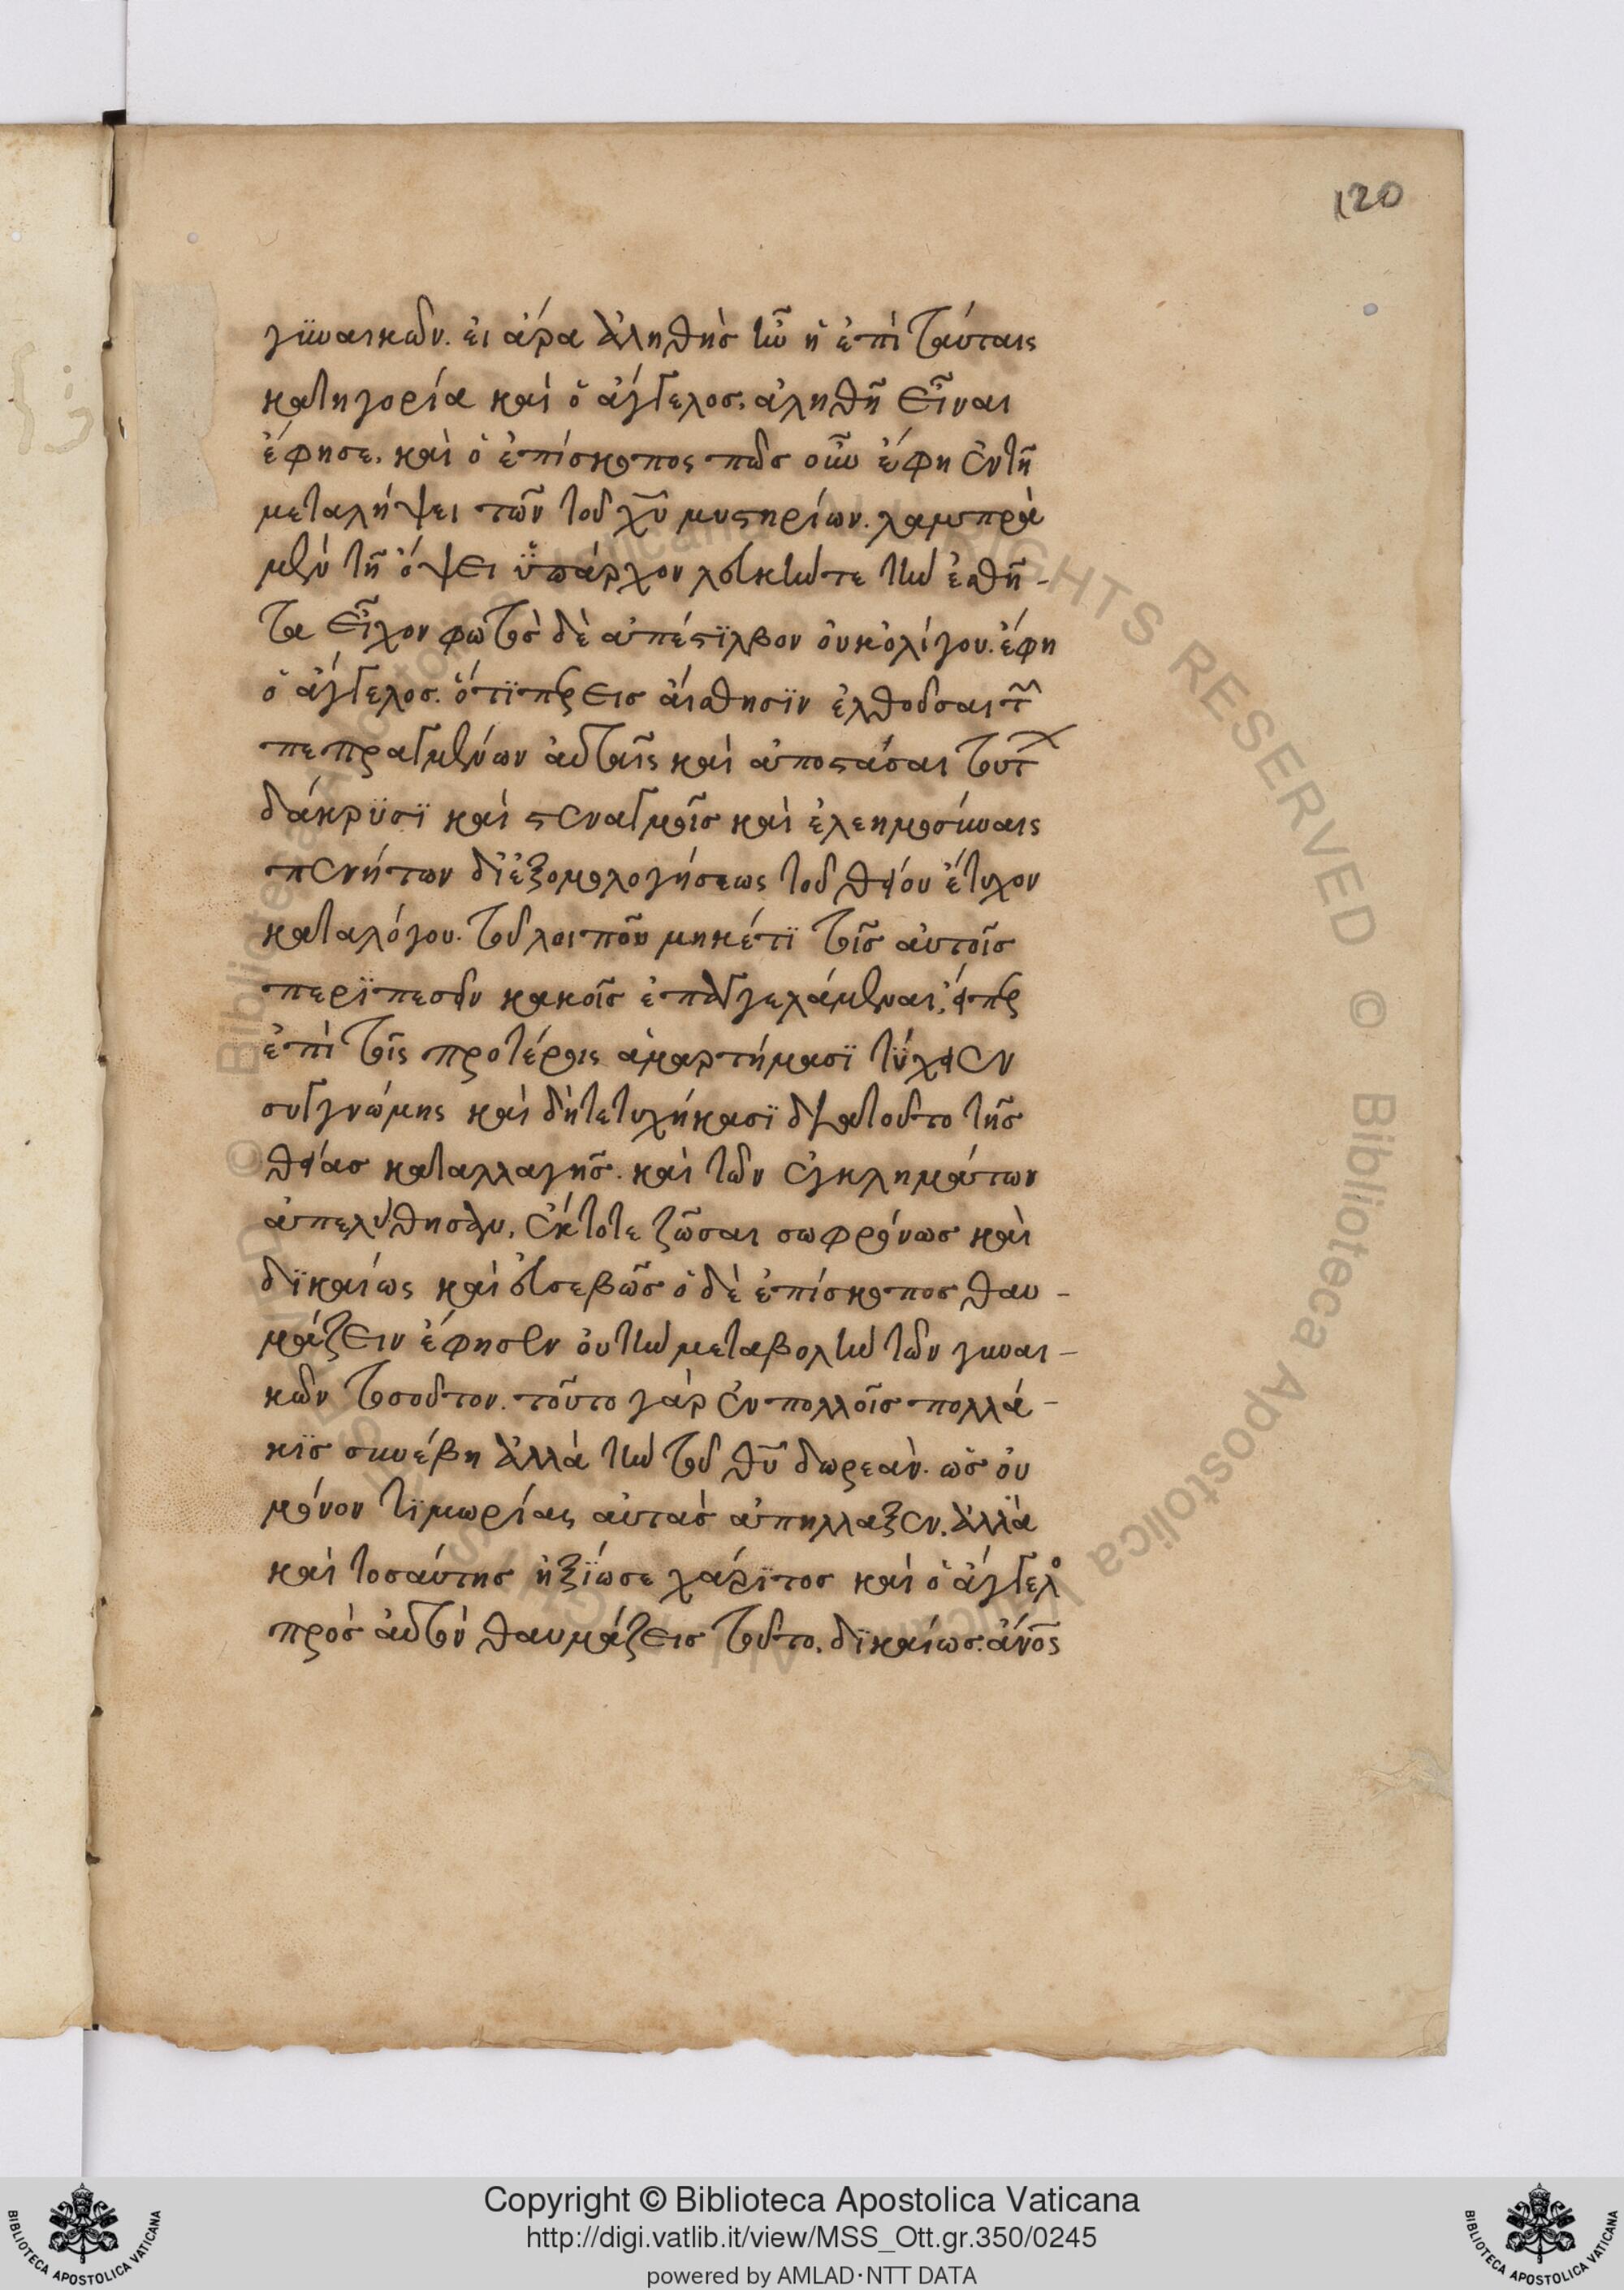 120
γϋναικῶν. ἐι ἄρα ἀληθὴσ ἦν ἡ ἐπὶ ταύταις
κατηγορία καὶ ὁ ἄγγελοσ. ἀληθῆ εἶναι
ἔφησε. καὶ ὁ ἐπίσκοπος πῶσ οὖν ἔφη ἐν τῆ
μεταλήψει τῶν τοῦ χῦ μυστηρίων. λαμπρὰ
μὲν τῆ ὄψει ὑπάρχον λευκήν τε τὴν ἐσθῆ-
τα εἶχον φωτὸσ δὲ ἀπέστϊλβον ὀυκ ὀλίγον. ἔφη
ὁ ἄγγελοσ. ὅτϊπερ εισ ἄισθησϊν ἐλθοῦσαι τῶν
πεπραγμένων ἀυταῖς καὶ ἀποστάσαι τούτων
δάκρϋσϊ καὶ στεναγμοῖσ καὶ ἐλεημοσύναις
πενήτων δϊ ἐξομολογήσεως τοῦ θείου ἔτυχον
καταλόγου. τοῦ λοιποῦ μηκέτϊ τοῖσ ἀυτοῖσ
περϊπεσεῖν κακοῖσ ἐπαγγειλάμεναι, εἴπερ
ἐπὶ τοῖς προτέροις ἁμαρτήμασϊ τϋχειεν
συγγνώμης καὶ δὴ τετυχήκασϊ διατοῦτο τῆσ
θείασ καταλλαγῆσ. καὶ τῶν ἐγκλημάτων
ἀπελύθησαν. ἔκτοτε ζῶσαι σωφρόνωσ καὶ
δϊκαίως καὶ εὐσεβῶσ ὁ δὲ ἐπίσκοποσ θαυ-
μάζειν ἔφησεν ὀυ τὴν μεταβολὴν τῶν γυναι-
κῶν τοσοῦτον. τοῦτο γὰρ ἐν πολλοῖσ πολλά-
κϊσ συνέβη ἀλλὰ τὴν τοῦ θῦ δωρεάν. ὡσ ὀυ
μόνον τϊμωρίας αὐτὰσ ἀπήλλαξεν. ἀλλὰ
καὶ τοσαύτησ ἠξϊωσε χάρϊτοσ καὶ ὁ ἄγγελο
πρὸσ ἀυτόν θαυμάζεισ τοῦτο. δϊκαίωσ. ἄνος
Copyright © Biblioteca Apostolica Vaticana
http://digi.vatlib.it/view/MSS_Ott.gr.350/0245
powered by AMLAD·NTT DATA